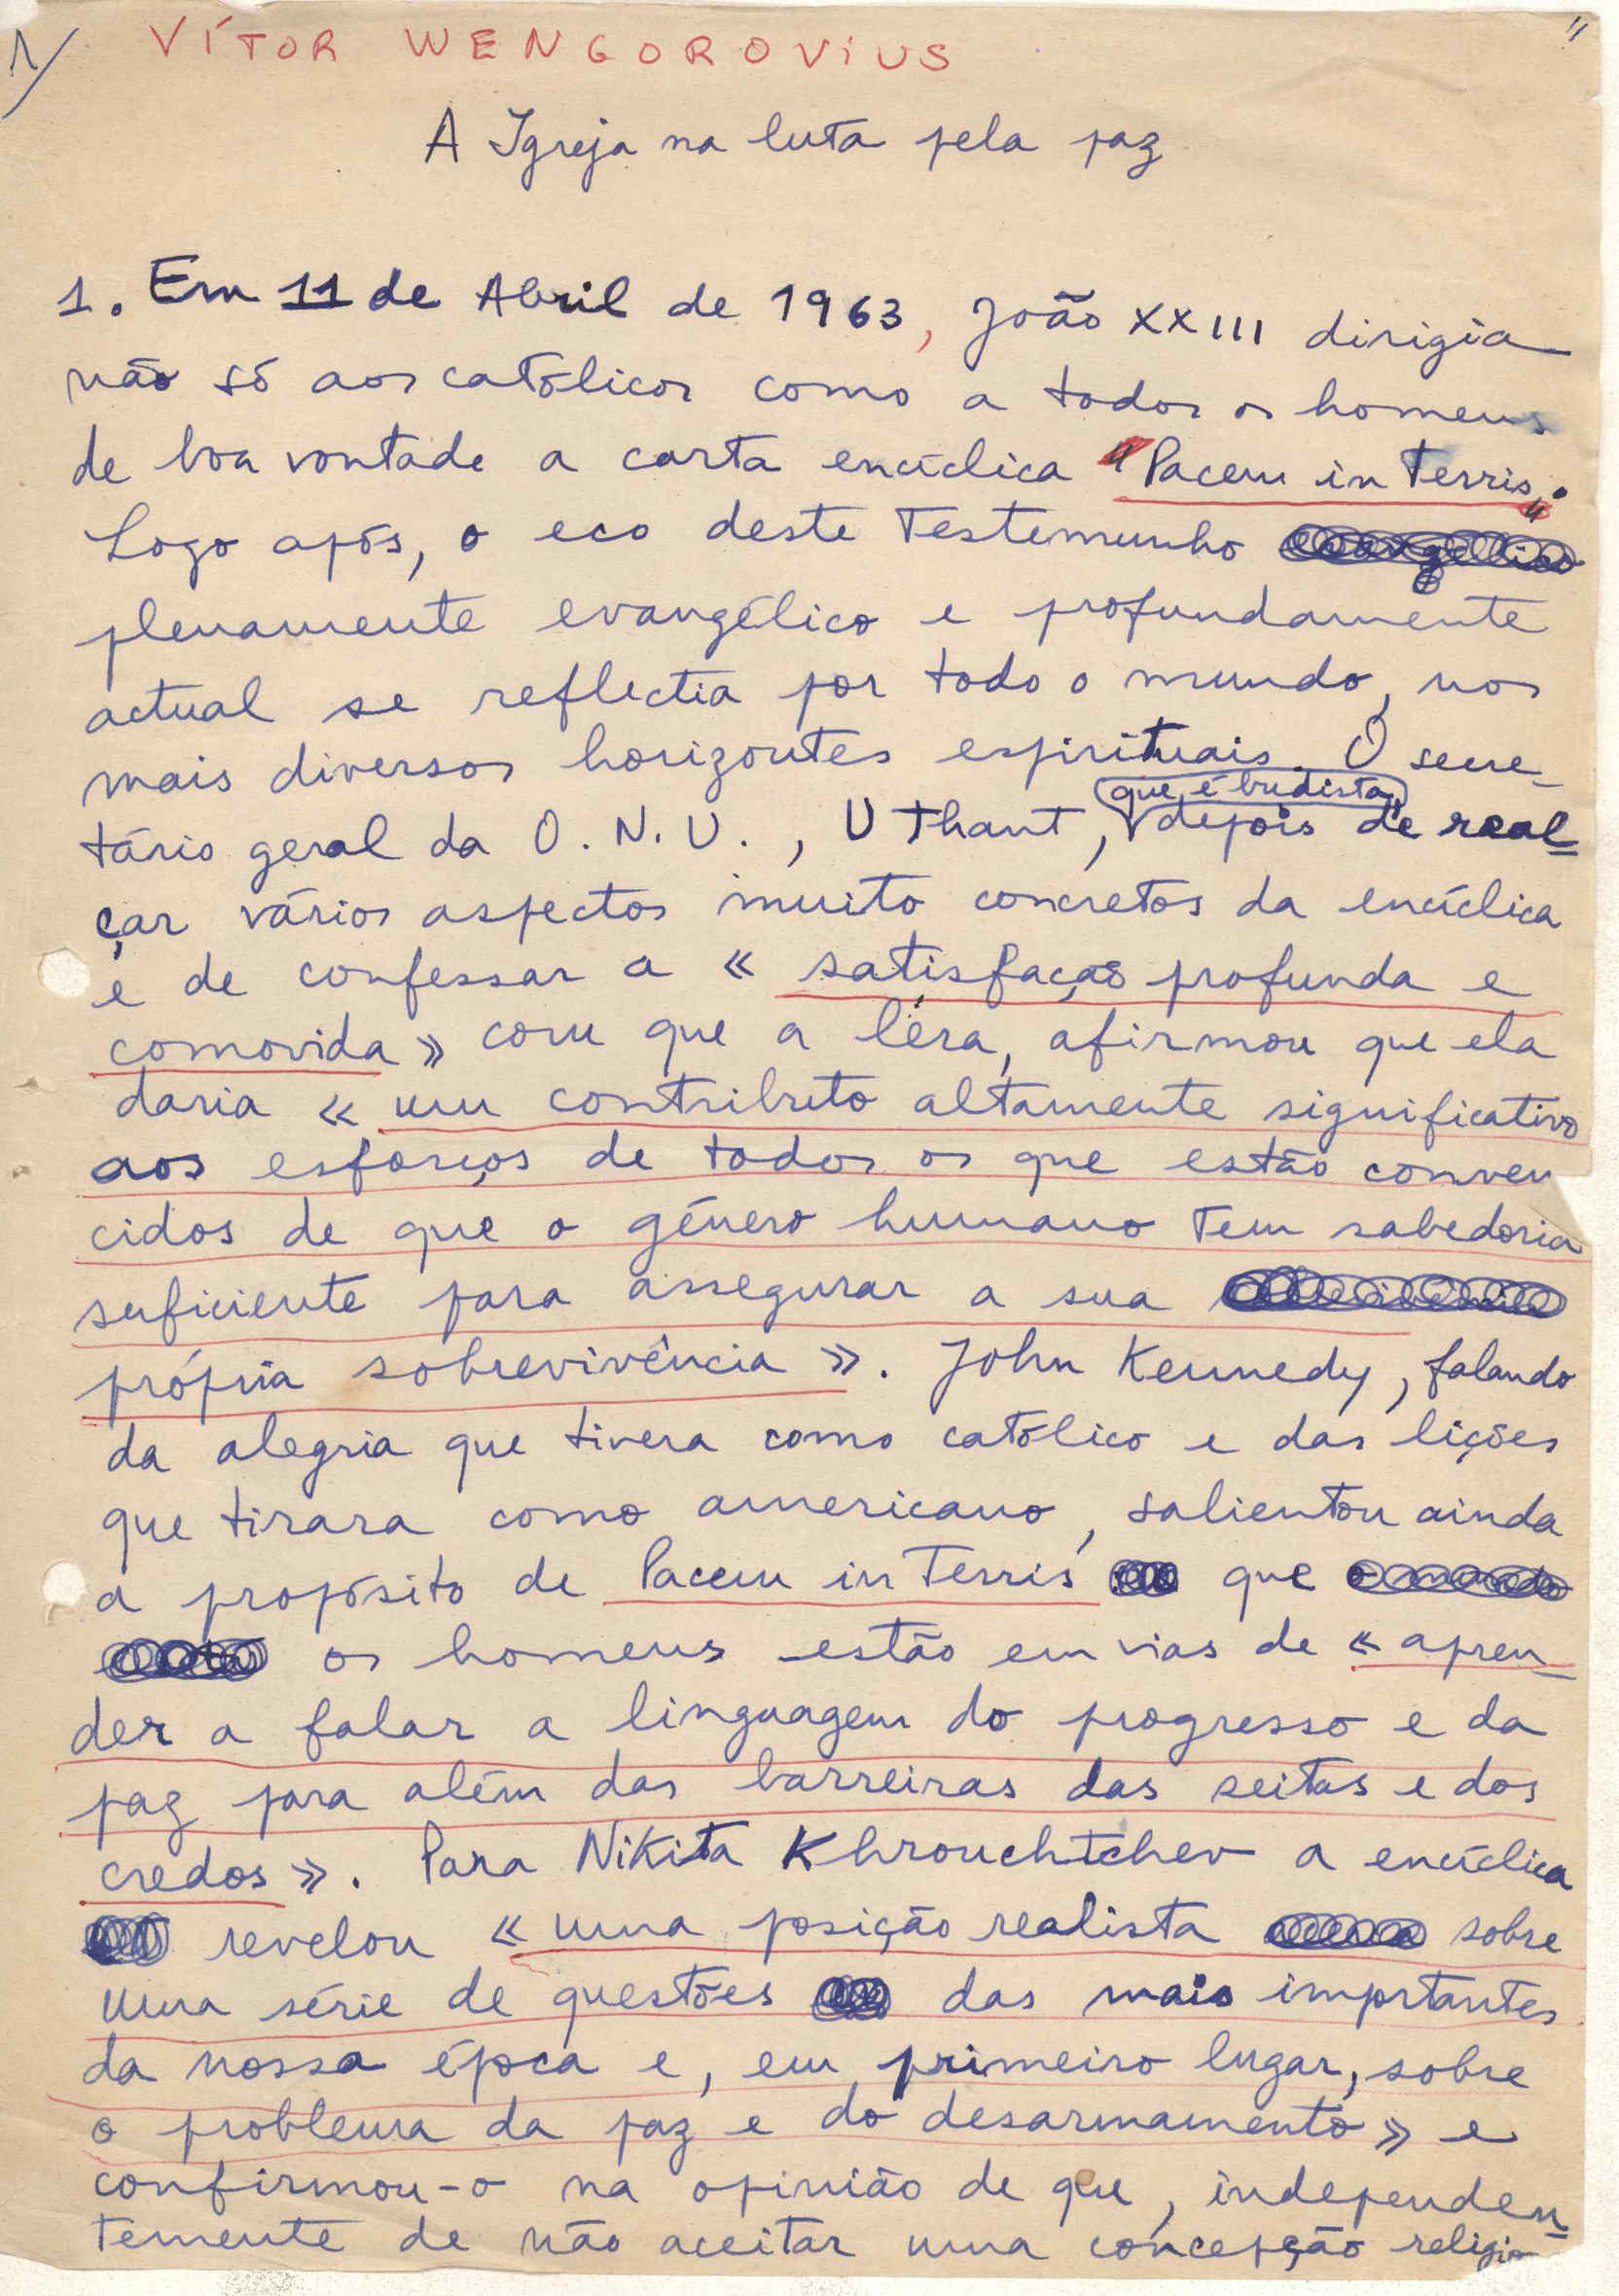 1/ VÍTOR WENGOROVIUS "
A Igreja na luta pela paz
1. Em 11 de Abril de 1963, João XXIII dirigia
não só aos católicos como a todos os homens
de boa vontade a carta encíclica "Pacem in Terris".
Logo após, o eco deste Testemunho
plenamente evangélico e profundamente
actual se reflectia por todo o mundo, nos
mais diversos horizontes espirituais. O secre-
que é budista,
tário geral da O.N.U., U Thant, depois de real-
çar vários aspectos muito concretos da encíclica
e de confessar a « satisfação profunda e
comovida » com que a lêra, afirmou que ela
daria « um contributo altamente significativo
aos esforços de todos os que estão conven
cidos de que o género humano tem sabedoria
suficiente para assegurar a sua
própria sobrevivência ». John Kennedy, falando
da alegria que tivera como católico e das lições
que tirara como americano, salientou ainda
a propósito de Pacem in Terris que
os homens estão em vias de « apren-
der a falar a linguagem do progresso e da
paz para além das barreiras das seitas e dos
credos ». Para Nikita Khrouchtchev a encíclica
revelou « uma posição realista sobre
uma série de questões das mais importantes
da nossa época e, em primeiro lugar, sobre
o problema da paz e do desarmamento » e
confirmou-o na opinião de que, independen-
temente de não aceitar uma concepção religio